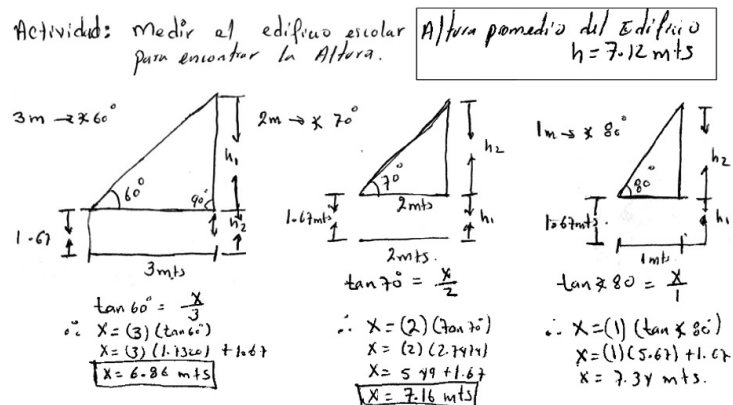 Actividad: Medir el edificio escolar
para encontrar la Altura.
Altura promedio del Edificio
h = 7.12 mts
3m → ∡ 60°
h₁
60°
90°
h₂
1.67
3mts
tan 60° = x/3
∴ x = (3)(tan 60°)
x = (3)(1.7320) + 1.67
x = 6.86 mts
2m → ∡ 70°
h₂
70°
2mts
1.67mts
h₁
2mts.
tan 70° = x/2
∴ x = (2)(tan 70°)
x = (2)(2.7474)
x = 5.49 + 1.67
x = 7.16 mts
1m → ∡ 80°
h₂
80°
1.67mts.
h₁
1mt.
tan ∡ 80 = x/1
∴ x = (1)(tan ∡ 80°)
x = (1)(5.67) + 1.67
x = 7.34 mts.